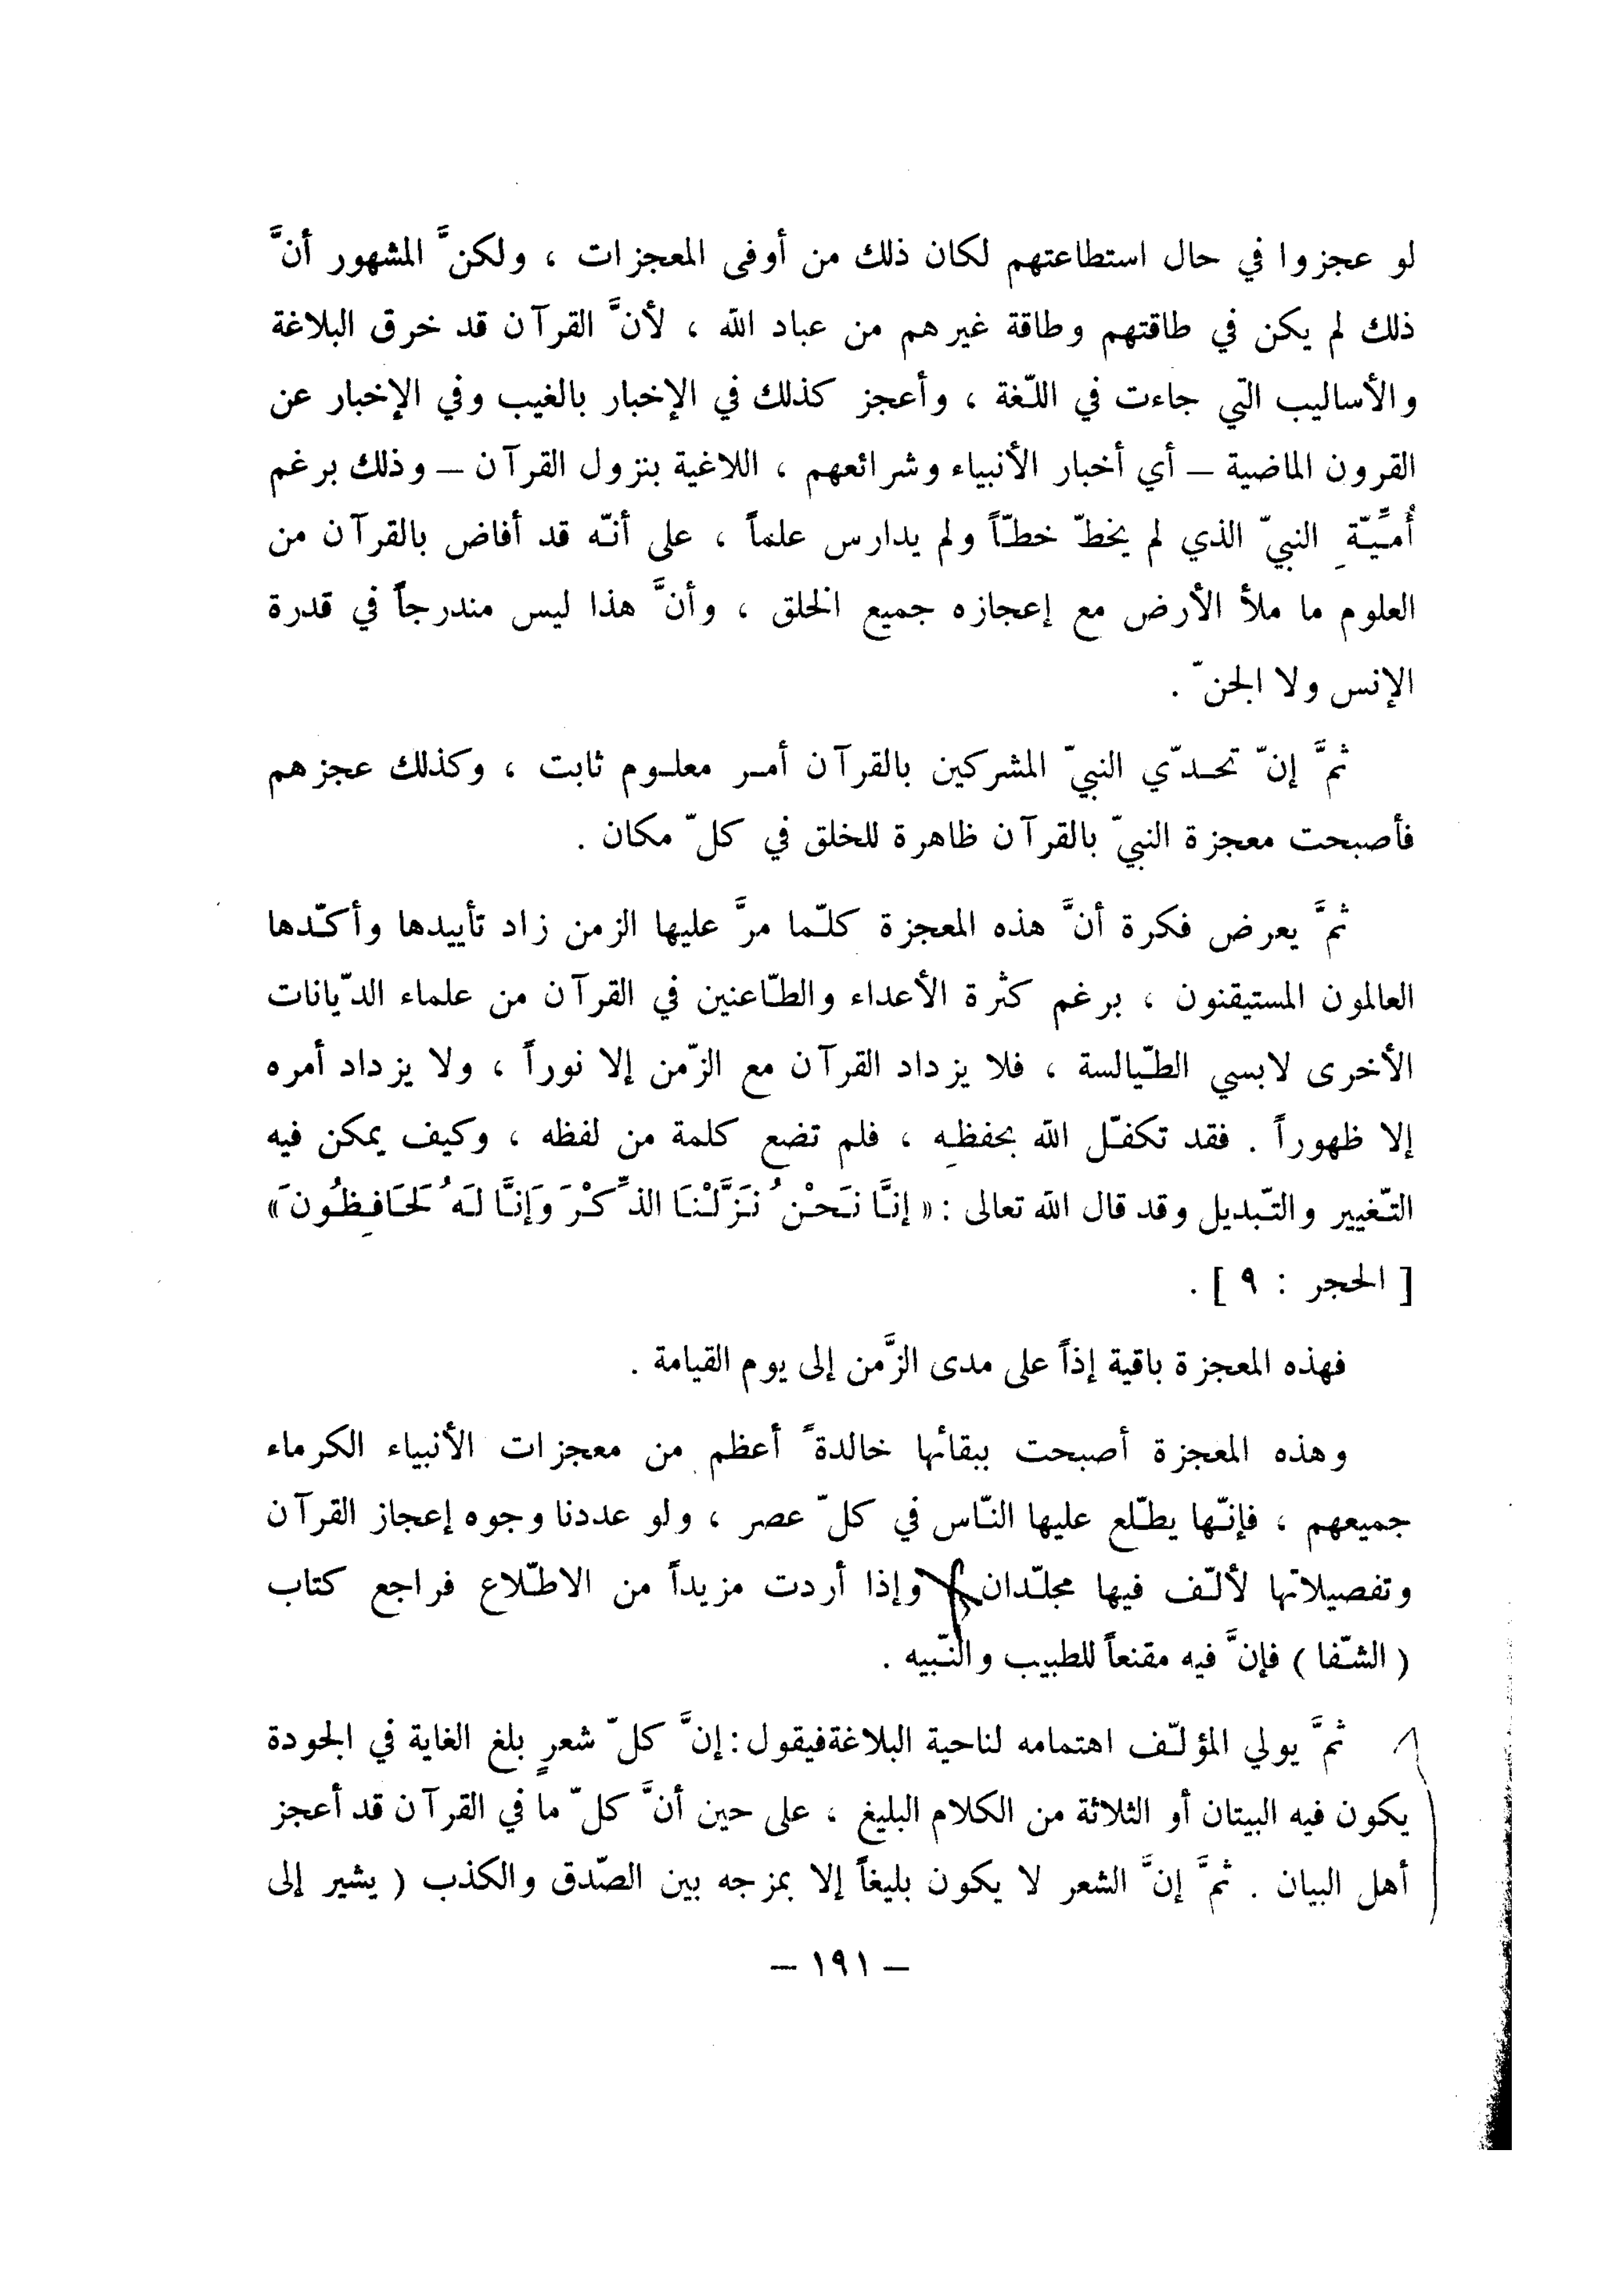 لو عجزوا في حال استطاعتهم لكان ذلك من أوفى المعجزات ، ولكنَّ المشهور أنَّ
ذلك لم يكن في طاقتهم وطاقة غيرهم من عباد الله ، لأنَّ القرآن قد خرق البلاغة
والأساليب التي جاءت في اللّغة ، وأعجز كذلك في الإخبار بالغيب وفي الإخبار عن
القرون الماضية – أي أخبار الأنبياء وشرائعهم ، اللاغية بنزول القرآن – وذلك برغم
أُمِّيّةِ النبيّ الذي لم يخطّ خطّاً ولم يدارس علماً ، على أنّه قد أفاض بالقرآن من
العلوم ما ملأ الأرض مع إعجازه جميع الخلق ، وأنَّ هذا ليس مندرجاً في قدرة
الإنس ولا الجنّ .
ثمَّ إنّ تحدّي النبيّ المشركين بالقرآن أمر معلوم ثابت ، وكذلك عجزهم
فأصبحت معجزة النبيّ بالقرآن ظاهرة للخلق في كلّ مكان .
ثمَّ يعرض فكرة أنَّ هذه المعجزة كلّما مرَّ عليها الزمن زاد تأييدها وأكّدها
العالمون المستيقنون ، برغم كثرة الأعداء والطّاعنين في القرآن من علماء الدّيانات
الأخرى لابسي الطّيالسة ، فلا يزداد القرآن مع الزّمن إلا نوراً ، ولا يزداد أمره
إلا ظهوراً . فقد تكفّل الله بحفظِه ، فلم تضع كلمة من لفظه ، وكيف يمكن فيه
التّغيير والتّبديل وقد قال الله تعالى : « إنَّا نَحْنُ نَزَّلْنَا الذِّكْرَ وَإنَّا لَهُ لَحَافِظُونَ »
[ الحجر : ٩ ] .
فهذه المعجزة باقية إذاً على مدى الزَّمن إلى يوم القيامة .
وهذه المعجزة أصبحت ببقائها خالدةً أعظم من معجزات الأنبياء الكرماء
جميعهم ، فإنّها يطّلع عليها النّاس في كلّ عصر ، ولو عددنا وجوه إعجاز القرآن
وتفصيلاتها لألّف فيها مجلّدان وإذا أردت مزيداً من الاطّلاع فراجع كتاب
( الشّفا ) فإنَّ فيه مقنعاً للطبيب والنّبيه .
ثمَّ يولي المؤلّف اهتمامه لناحية البلاغة فيقول : إنَّ كلّ شعرٍ بلغ الغاية في الجودة
يكون فيه البيتان أو الثلاثة من الكلام البليغ ، على حين أنَّ كلّ ما في القرآن قد أعجز
أهل البيان . ثمَّ إنَّ الشعر لا يكون بليغاً إلا بمزجه بين الصّدق والكذب ( يشير إلى
– ١٩١ –